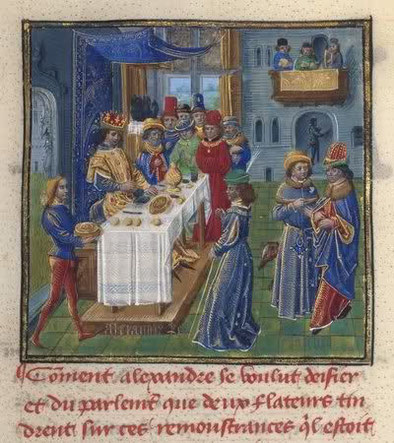 ¶ Cõment alexandre se voulut deifier
et du parlemt que deux flateurs tin
drent sur ces remoustrances q̃l estoit